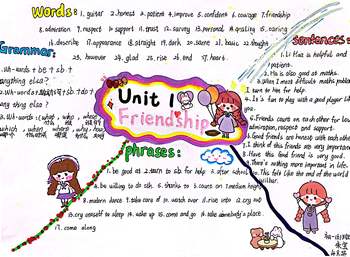 Words:
1. guitar 2. honest 3. patient 4. improve 5. confident 6. courage 7. friendship
8. admiration 9. respect 10. support 11. trust 12. survey 13. personal 14. 15. caring
16. describe 17. appearance 18. straight 19. dark 20. same 21. basic 22. thought
23. however 24. glad 25. rise 26. end 27. heart
Grammar:
1. Wh-words + be + sb +
anything else?
2. Wh-words + do + sb +
any thing else?
3. Wh-words: (what, who, whose
which, when, where, why, how
Unit 1
Friendship
sentences:
1. Li Hua is helpful and
patient.
2. He is also good at maths.
3. When I meet difficult maths problems
I turn to him for help.
4. It's fun to play with a good player li
5. Friends count on each other for lov
admiration, respect and support.
6. Good friends are honest with each other
7. I think of this friends are very important
8. Have this good friend is very good.
9. There's nothing more important in life.
10. This felt like the end of the world
phrases:
1. be good at 2. turn to sb for help 3. after school
4. be willing to do sth. 5. thanks to 6. count on
8. modern dance 9. take care of 10. watch over 11. rise into 12. cry out
13. cry oneself to sleep 14. wake up 15. come and go 16. take somebody's place.
17. come along